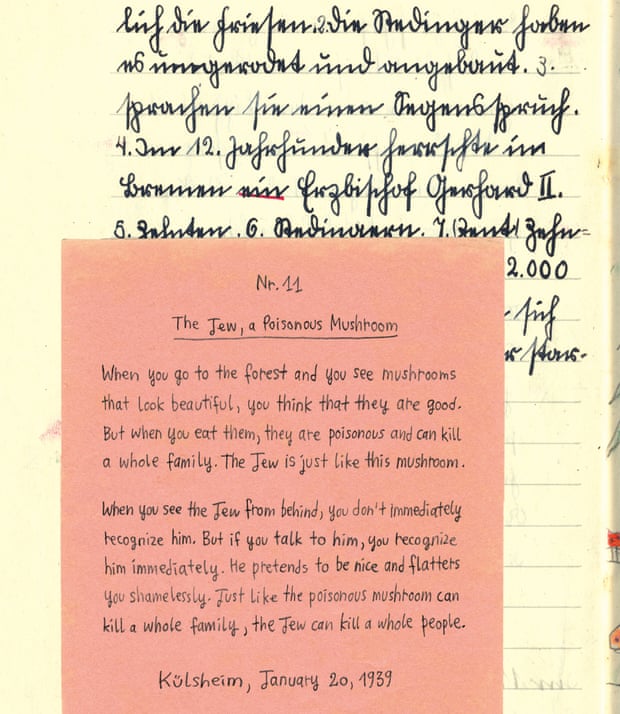 lich die Friesen. 2. die Stedinger haben
es und angebaut. 3.
sprachen sie einen Segensspruch.
4. Im 12. Jahrhunder herrschte im
Bremen ein Erzbischof Gerhard II.
5. Zehnten. 6. Stedingern. 7. Zehn=
2.000
sich
r star-
Nr. 11
The Jew, a Poisonous Mushroom
When you go to the forest and you see mushrooms
that look beautiful, you think that they are good.
But when you eat them, they are poisonous and can kill
a whole family. The Jew is just like this mushroom.
When you see the Jew from behind, you don't immediately
recognize him. But if you talk to him, you recognize
him immediately. He pretends to be nice and flatters
you shamelessly. Just like the poisonous mushroom can
kill a whole family, the Jew can kill a whole people.
Külsheim, January 20, 1939